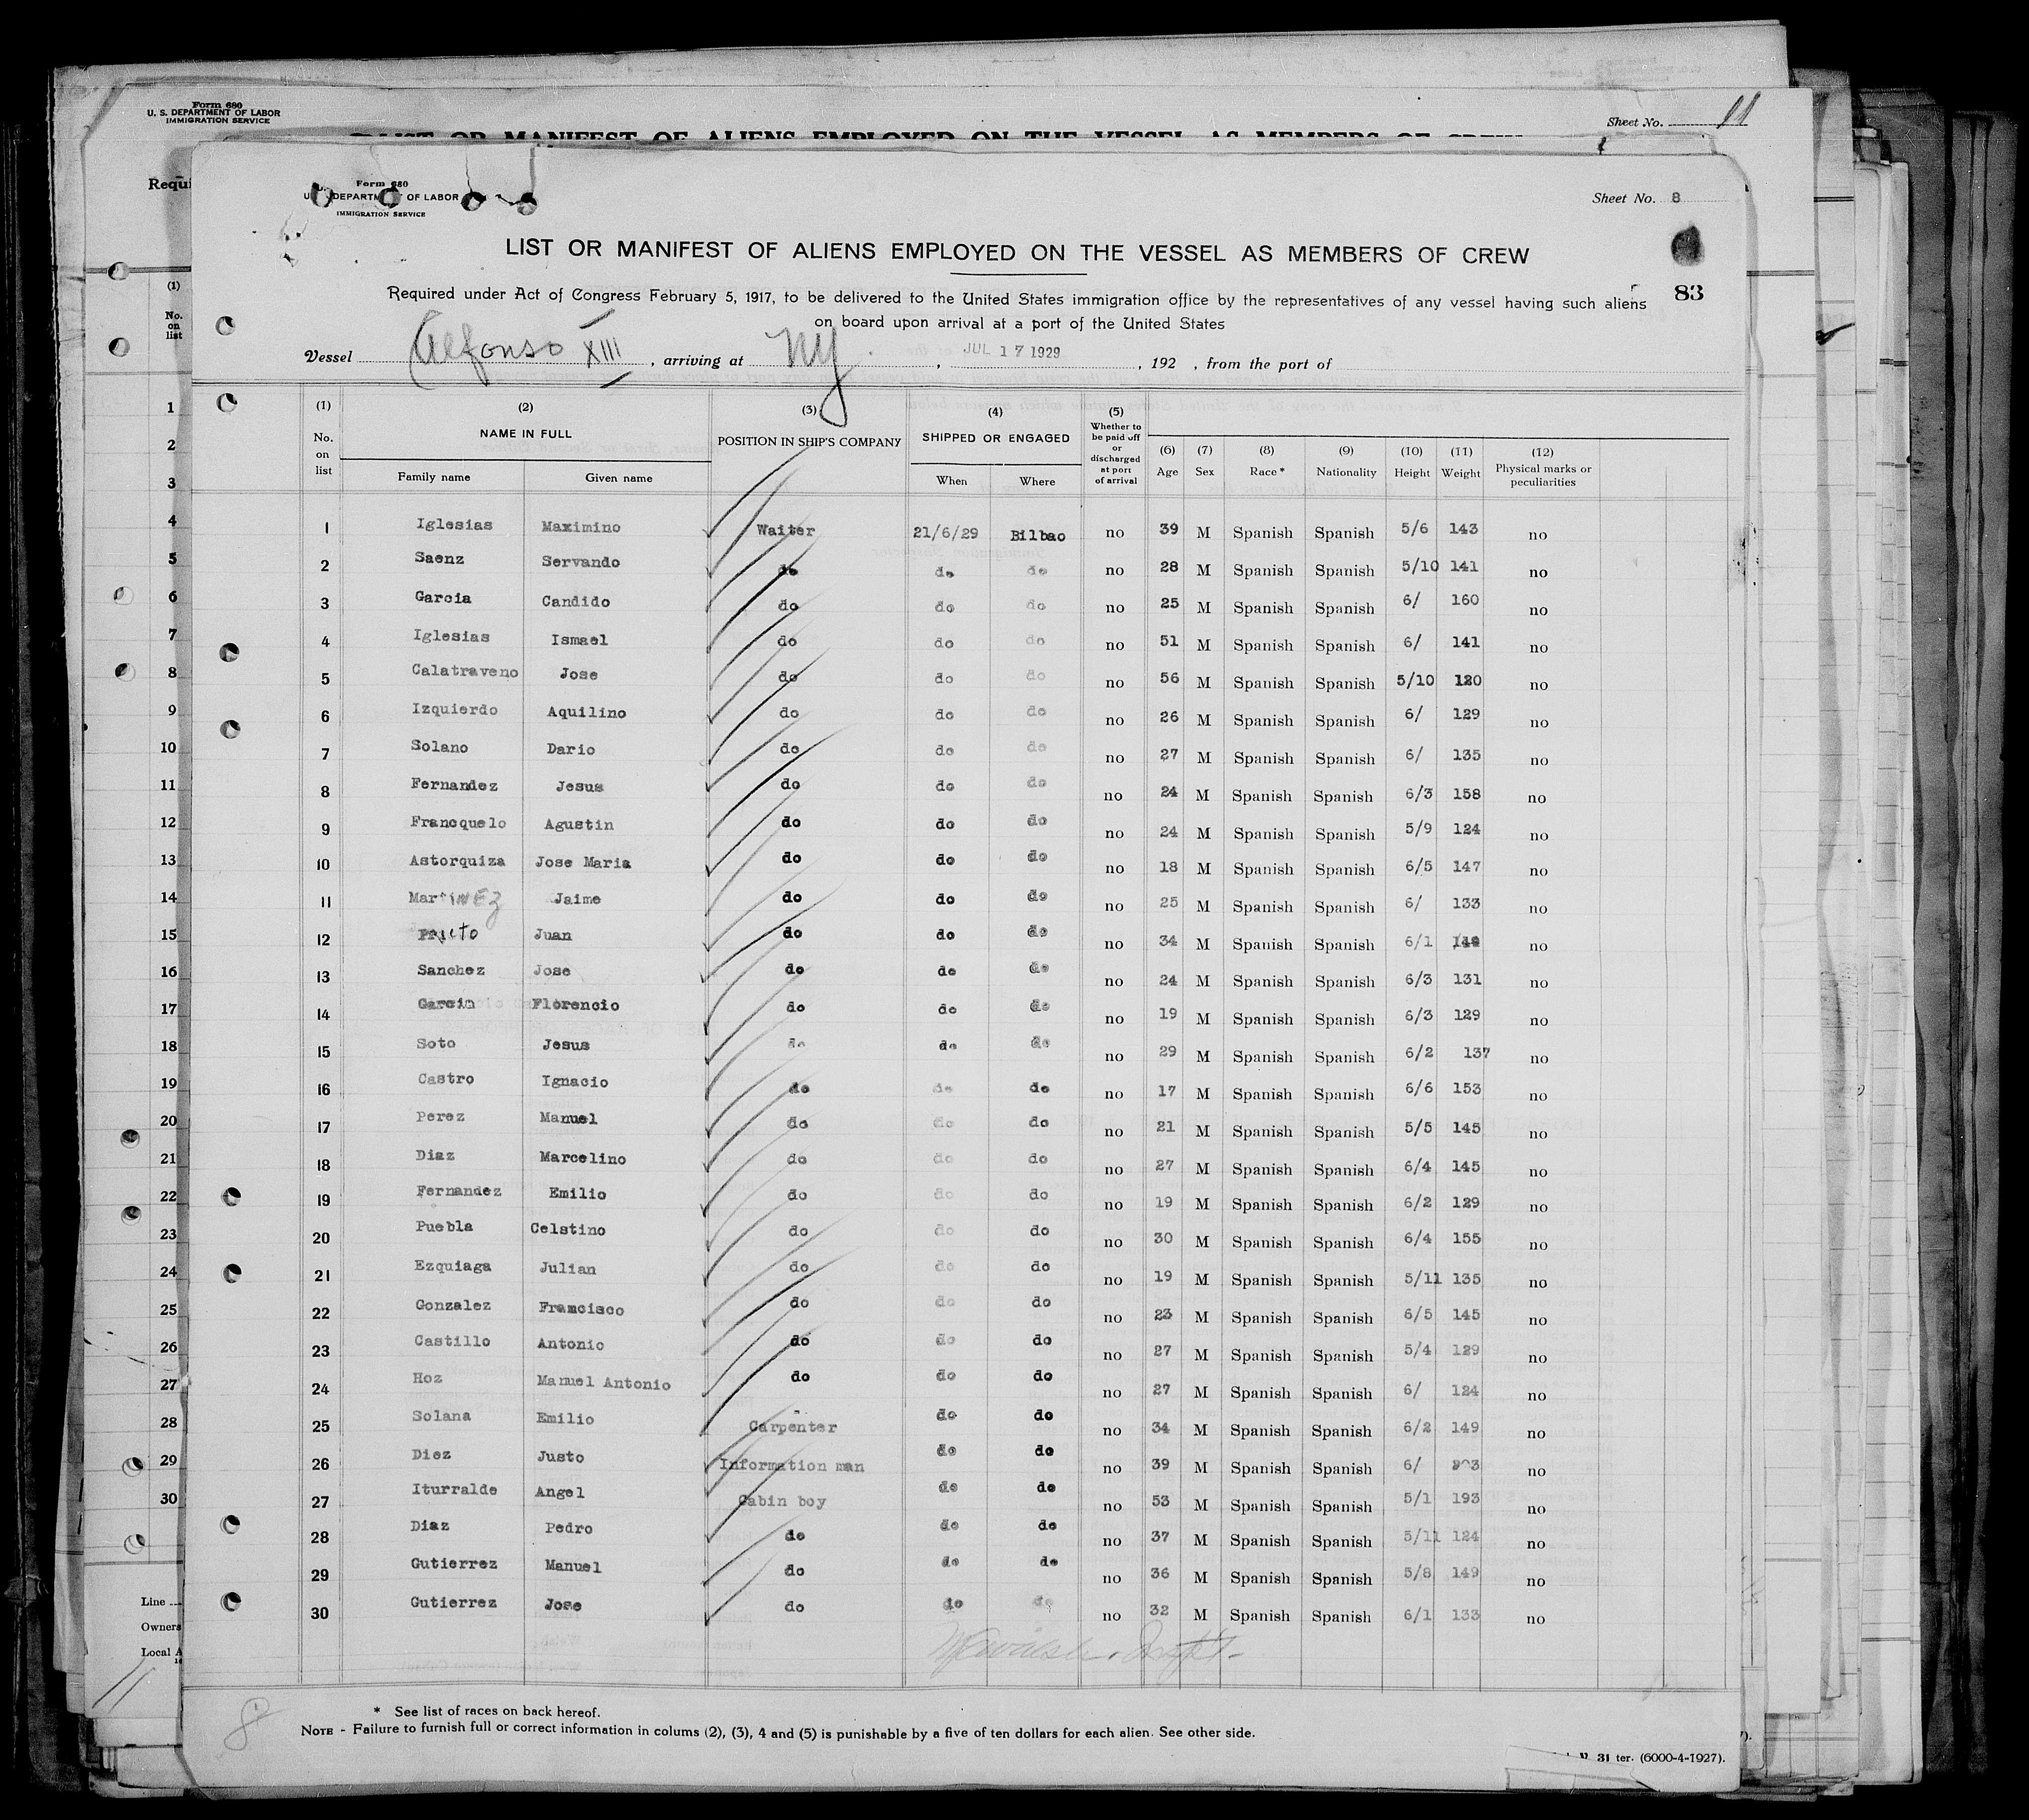 Form 680
U. S. DEPARTMENT OF LABOR
IMMIGRATION SERVICE
Sheet No. 11
LIST OR MANIFEST OF ALIENS EMPLOYED ON THE VESSEL AS MEMBERS OF CREW
Requi
(1)
No.
on
list
1
2
3
4
5
6
7
8
9
10
11
12
13
14
15
16
17
18
19
20
21
22
23
24
25
26
27
28
29
30
Line
Owners
Local A
11
Form 680
U. S. DEPARTMENT OF LABOR
IMMIGRATION SERVICE
Sheet No. 8
LIST OR MANIFEST OF ALIENS EMPLOYED ON THE VESSEL AS MEMBERS OF CREW
Required under Act of Congress February 5, 1917, to be delivered to the United States immigration office by the representatives of any vessel having such aliens
83
on board upon arrival at a port of the United States
Vessel Alfonso XIII, arriving at NY, JUL 17 1929, 192 , from the port of
(1) No. on list (2) NAME IN FULL Family name Given name (3) POSITION IN SHIP'S COMPANY (4) SHIPPED OR ENGAGED When Where (5) Whether to be paid off or discharged at port of arrival (6) Age (7) Sex (8) Race * (9) Nationality (10) Height (11) Weight (12) Physical marks or peculiarities
1 Iglesias Maximino Waiter 21/6/29 Bilbao no 39 M Spanish Spanish 5/6 143 no
2 Saenz Servando do do do no 28 M Spanish Spanish 5/10 141 no
3 Garcia Candido do do do no 25 M Spanish Spanish 6/ 160 no
4 Iglesias Ismael do do do no 51 M Spanish Spanish 6/ 141 no
5 Calatraveno Jose do do do no 56 M Spanish Spanish 5/10 120 no
6 Izquierdo Aquilino do do do no 26 M Spanish Spanish 6/ 129 no
7 Solano Dario do do do no 27 M Spanish Spanish 6/ 135 no
8 Fernandez Jesus do do do no 24 M Spanish Spanish 6/3 158 no
9 Francquelo Agustin do do do no 24 M Spanish Spanish 5/9 124 no
10 Astorquiza Jose Maria do do do no 18 M Spanish Spanish 6/5 147 no
11 Martinez Jaime do do do no 25 M Spanish Spanish 6/ 133 no
12 Prieto Juan do do do no 34 M Spanish Spanish 6/1 no
13 Sanchez Jose do do do no 24 M Spanish Spanish 6/3 131 no
14 Garcia Florencio do do do no 19 M Spanish Spanish 6/3 129 no
15 Soto Jesus do do do no 29 M Spanish Spanish 6/2 137 no
16 Castro Ignacio do do do no 17 M Spanish Spanish 6/6 153 no
17 Perez Manuel do do do no 21 M Spanish Spanish 5/5 145 no
18 Diaz Marcelino do do do no 27 M Spanish Spanish 6/4 145 no
19 Fernandez Emilio do do do no 19 M Spanish Spanish 6/2 129 no
20 Puebla Celstino do do do no 30 M Spanish Spanish 6/4 155 no
21 Ezquiaga Julian do do do no 19 M Spanish Spanish 5/11 135 no
22 Gonzalez Francisco do do do no 23 M Spanish Spanish 6/5 145 no
23 Castillo Antonio do do do no 27 M Spanish Spanish 5/4 129 no
24 Hoz Manuel Antonio do do do no 27 M Spanish Spanish 6/ 124 no
25 Solana Emilio Carpenter do do no 34 M Spanish Spanish 6/2 149 no
26 Diez Justo Information man do do no 39 M Spanish Spanish 6/ no
27 Iturralde Angel Cabin boy do do no 53 M Spanish Spanish 5/1 193 no
28 Diaz Pedro do do do no 37 M Spanish Spanish 5/11 124 no
29 Gutierrez Manuel do do do no 36 M Spanish Spanish 5/8 149 no
30 Gutierrez Jose do do do no 32 M Spanish Spanish 6/1 133 no
8
* See list of races on back hereof.
NOTE - Failure to furnish full or correct information in colums (2), (3), 4 and (5) is punishable by a five of ten dollars for each alien. See other side.
31 ter. (6000-4-1927).